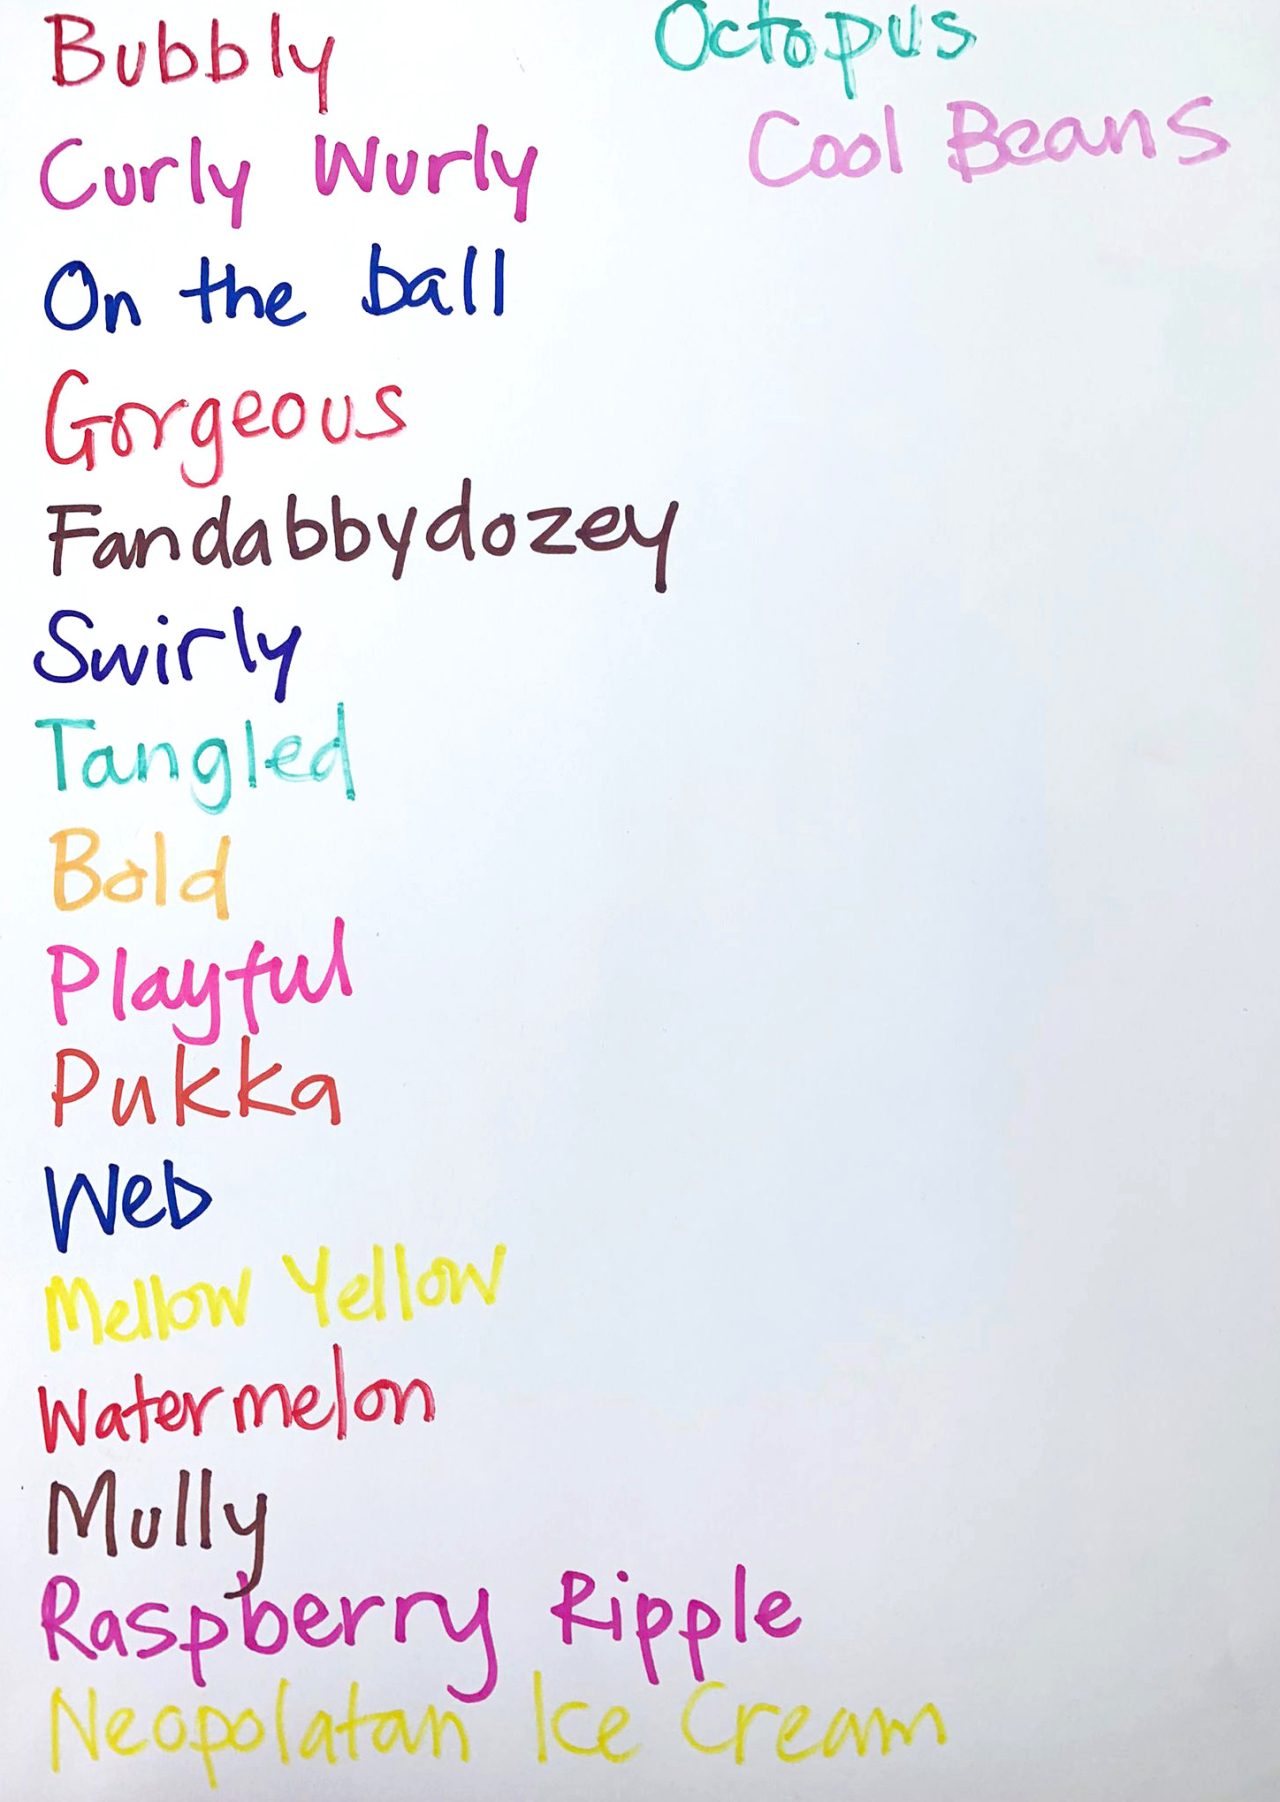 Bubbly
Curly Wurly
On the ball
Gorgeous
Fandabbydozey
Swirly
Tangled
Bold
Playful
Pukka
Web
Mellow Yellow
Watermelon
Mully
Raspberry Ripple
Neopolatan Ice Cream
Octopus
Cool Beans